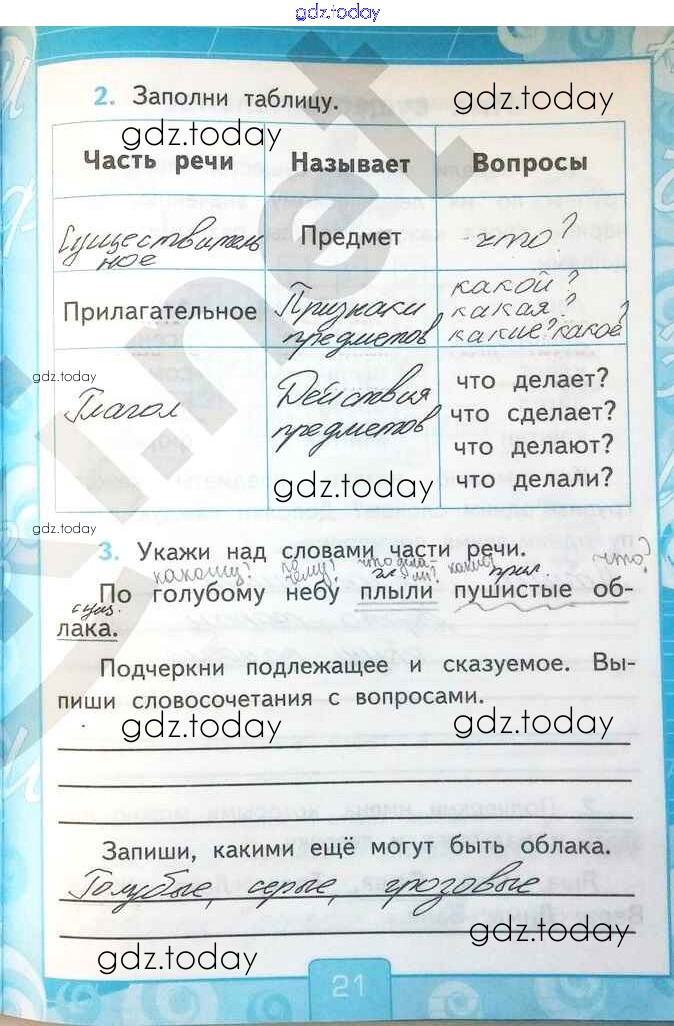 gdz.today
2. Заполни таблицу.
gdz.today
gdz.today
Часть речи Называет Вопросы
Существитель Предмет что?
ное
Прилагательное Признаки какой?
предметов какая?
какие? какое?
gdz.today
Глагол Действия что делает?
предметов что сделает?
что делают?
что делали?
gdz.today
gdz.today
3. Укажи над словами части речи.
какому? по чему? что дела что?
гл ли? какие? прил
По голубому небу плыли пушистые об-
сущ.
лака.
Подчеркни подлежащее и сказуемое. Вы-
пиши словосочетания с вопросами.
gdz.today gdz.today
Запиши, какими ещё могут быть облака.
Голубые, серые, грозовые
gdz.today
gdz.today
21